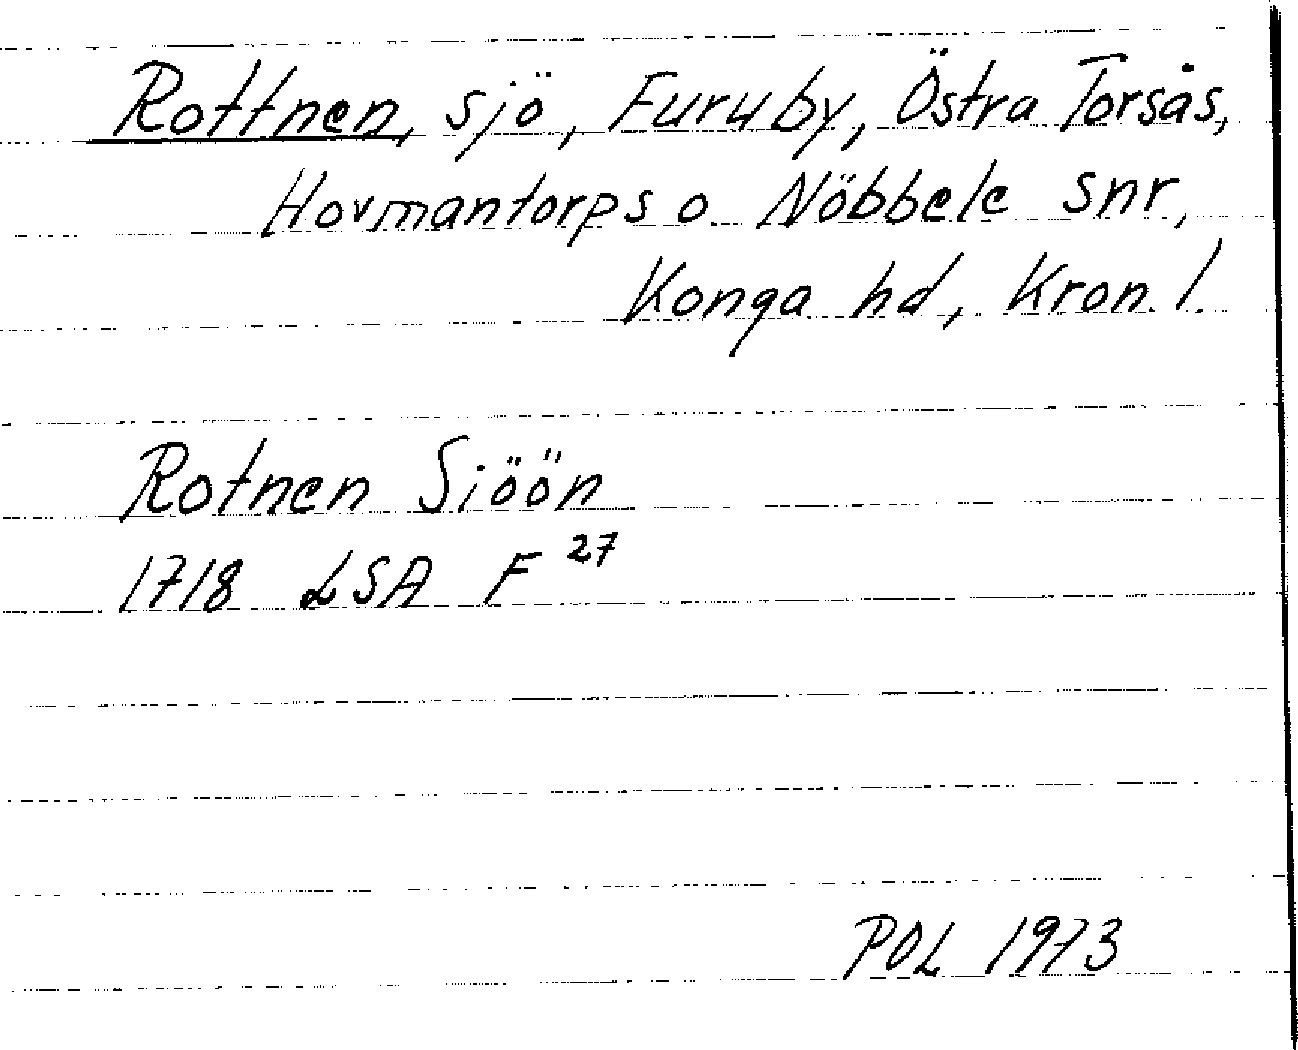 Rottnen, sjö, Furuby, Östra Torsås,
Hovmantorps o. Nöbbele snr,
Konga hd, Kron. l.
Rotnen Siöön
1718 LSA F 27
POL 1973